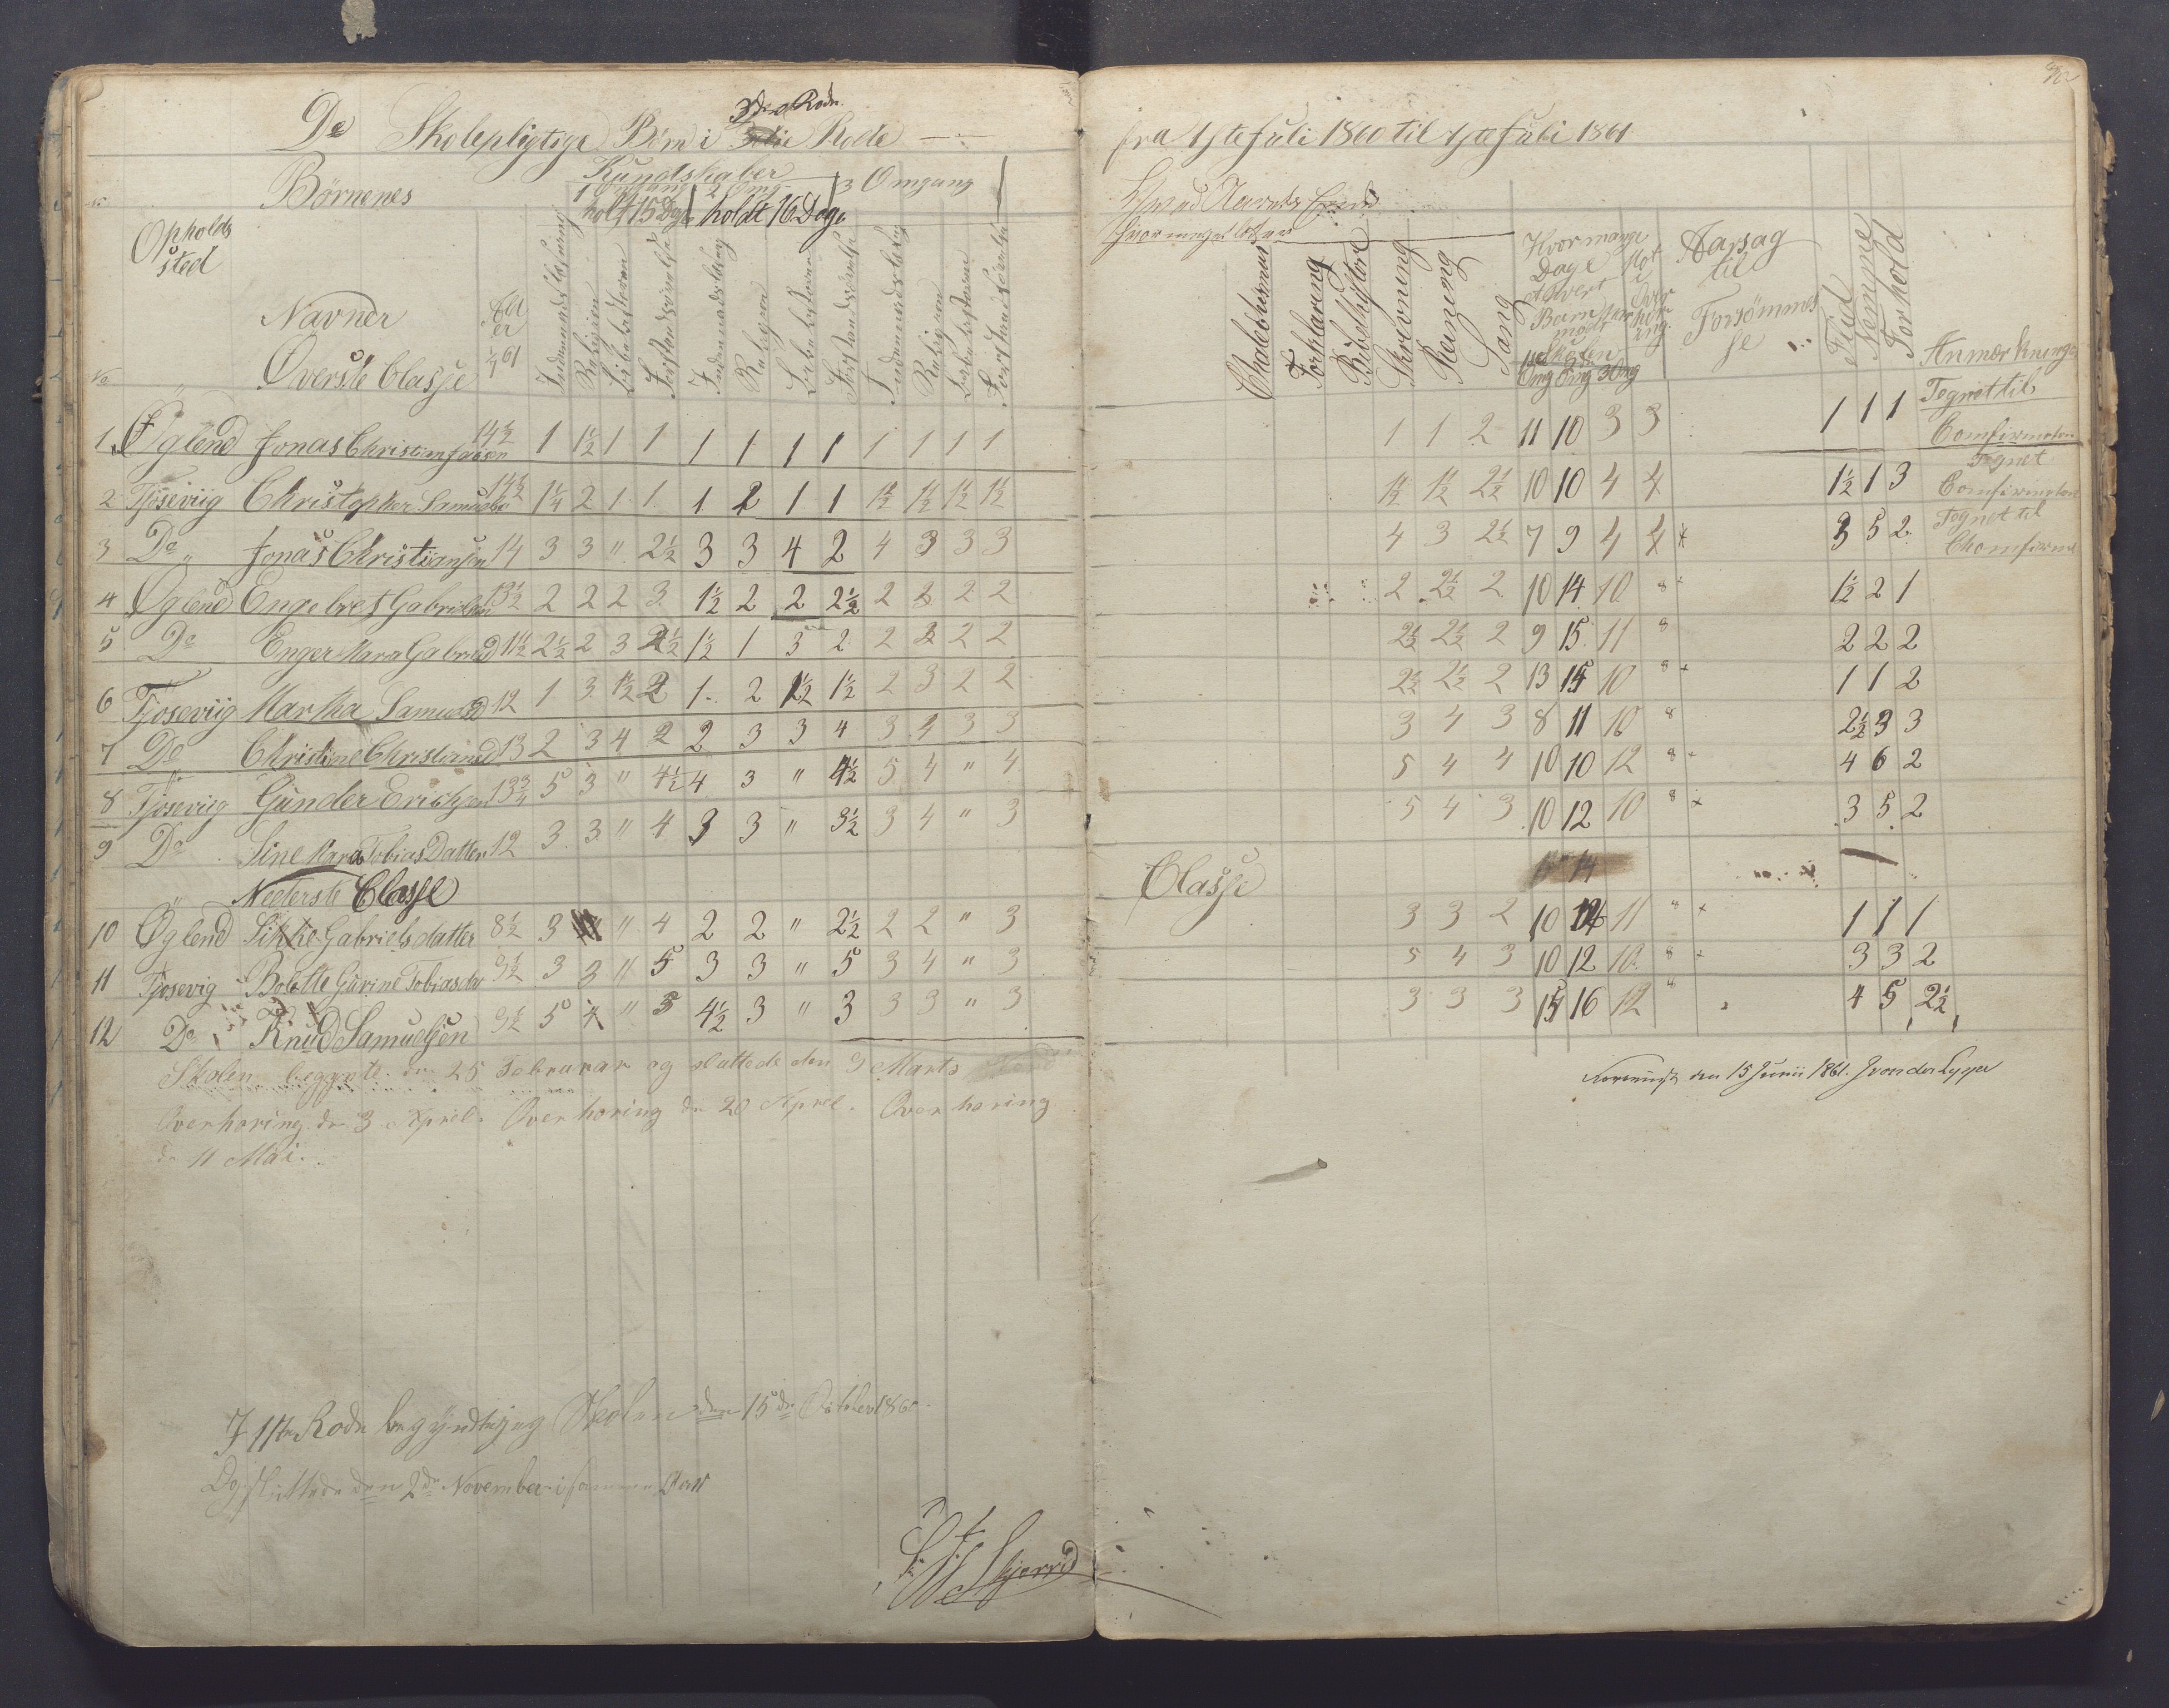 3die Rode
De Skolepligtige Børn i Rode
Kundskaber
Børnenes 1 Omgang 2 Omg 3 Omgang
holt 15 Dage holdt 16 Dage
Opholds
sted
Navner
Øverste Classe
1 Øglend Jonas Christiansen 14½ 1 1½ 1 1 1 1 1 1 1 1 1 1
2 Tjøseviig Christopher Samuels 14½ 1¼ 2 1 1 1 2 1 1 1½ 1½ 1½ 1½
3 Do „ Jonas Christiansen 14 3 3 „ 2½ 3 3 4 2 4 3 3 3
4 Øglend Engebret Gabrielsen 13½ 2 2 2 3 1½ 2 2 2½ 2 2 2 2
5 Do Enger Mara Gabrield 11½ 2½ 2 3 2½ 1½ 1 3 2 2 2 2 2
6 Tjoseviig Martha Samuelsd 12 1 3 1½ 2 1 2 1½ 1½ 2 3 2 2
7 Do Christine Christiansd 13 2 3 4 2 2 3 3 4 3 4 3 3
8 Tjoseviig Gunder Erichsen 13¾ 5 3 „ 4½ 4 3 „ 4½ 5 4 „ 4
9 Do Sine Mara Tobias Datter 12 3 3 „ 4 3 3 „ 3½ 3 4 „ 3
„ Nederste Classe
10 Øglend Sikke Gabrielsdatter 8½ 3 „ 4 2 2 „ 2½ 2 2 „ 3
11 Tjosevig Bolette Gurine Tobiasdtr 9½ 3 3 „ 5 3 3 „ 5 3 4 „ 3
12 Do Knud Samuelsen 9½ 5 4 „ 5 4½ 3 „ 3 3 3 „ 3
Skolen begynte den 25 Februrar og sluttede den 9 Marts
Overhøring den 3 April. Overhøring den 20 April. Overhøring
den 11 Mai.
I 1ste Rode begyndte jeg Skolen den 15de October 1860.
Og sluttede den 2de November i samme Aar
fra 1ste Juli 1860 til 1ste Juli 1861
Ved Aarets Ende
Forklaring
Bibelhistore
Skrivning
Rening
Sang
Hvor mange
Dage
Hvert
Barn
mødt
Skolen
1 Omg 2 Omg 3 Omg
Aarsag
til
Forsømmel
se
Flid
Nemme
Forhold
Anmærkninger
1 1 2 11 10 3 3 1 1 1 Tegnet til
Comfirmation
1½ 1½ 2½ 10 10 4 4 1½ 1 3 Tegnet
Comfirmation
4 3 2½ 7 9 4 4 3 5 2 Tegnet til
Chomfirma
2 2½ 2 10 14 10 8 1½ 2 1
2½ 2½ 2 9 15 11 8 2 2 2
2½ 2½ 2 13 15 10 8 1 1 2
3 4 3 8 11 10 8 2½ 3 3
5 4 4 10 10 12 8 4 6 2
5 4 3 10 12 10 8 3 5 2
Classe
3 3 2 10 14 11 8 1 1 1
5 4 3 10 12 10 8 3 3 2
3 3 3 15 16 12 8 4 5 2½
den 15 Junii 1861. J von der Lippe